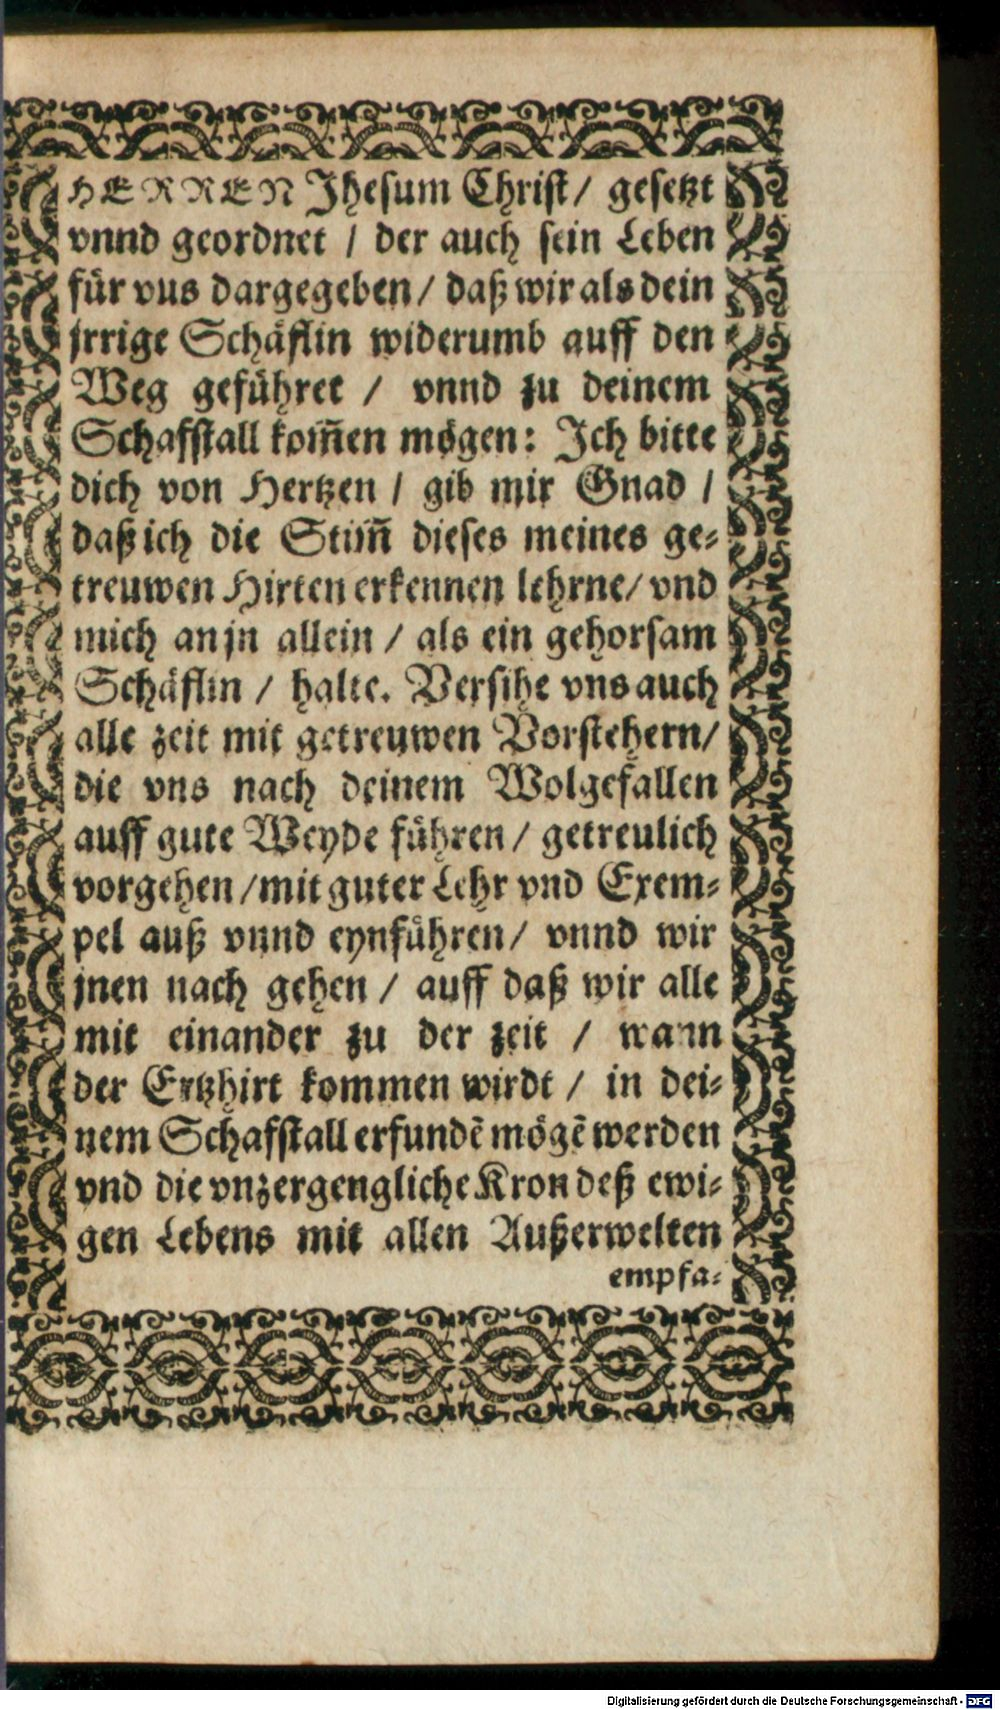 HERREN Jhesum Christ / gesetzt
vnnd geordnet / der auch sein Leben
für vns dargegeben / daß wir als dein
jrrige Schäflin widerumb auff den
Weg geführet / vnnd zu deinem
Schafstall kom̃en mögen: Jch bitte
dich von Hertzen / gib mir Gnad /
daß ich die Stim̃ dieses meines ge-
treuwen Hirten erkennen lehrne / vnd
mich an jn allein / als ein gehorsam
Schäflin / halte. Versihe vns auch
alle zeit mit getreuwen Vorstehern /
die vns nach deinem Wolgefallen
auff gute Weyde führen / getreulich
vorgehen / mit guter Lehr vnd Exem-
pel auß vnnd eynführen / vnnd wir
jnen nach gehen / auff daß wir alle
mit einander zu der zeit / wann
der Ertzhirt kommen wirdt / in dei-
nem Schafstall erfundẽ mögẽ werden
vnd die vnzergengliche Kron deß ewi-
gen Lebens mit allen Außerwelten
empfa-
Digitalisierung gefördert durch die Deutsche Forschungsgemeinschaft - DFG